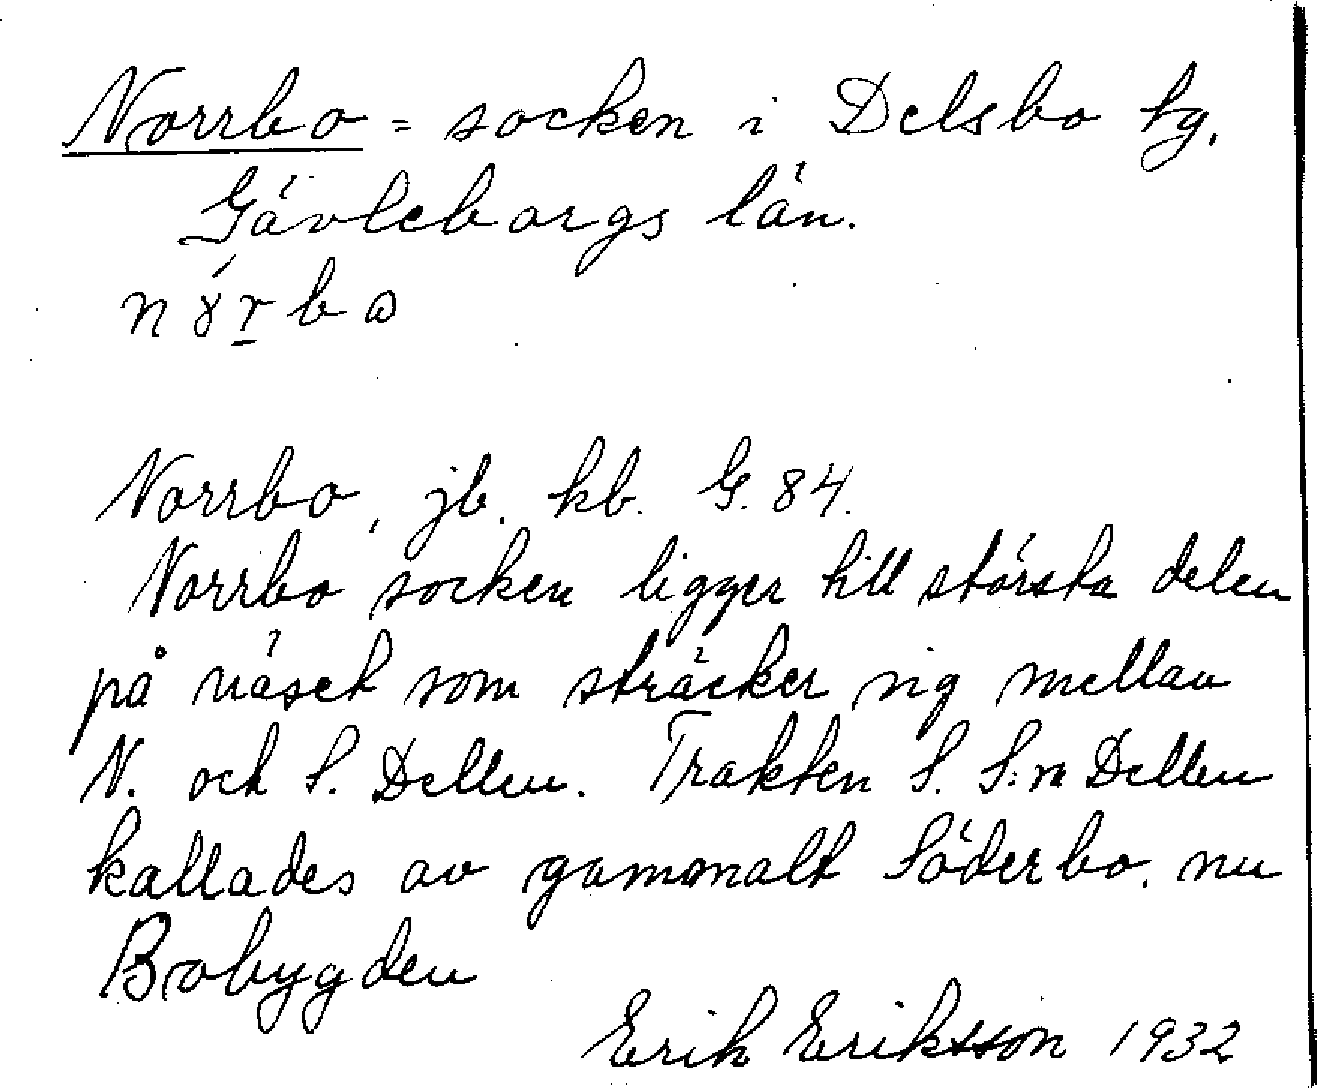 Norrbo = socken i Delsbo tg.
Gävleborgs län.
Norrbo, jb. kb. G. 84.
Norrbo socken ligger till största delen
på näset som sträcker sig mellan
N. och S. Dellen. Trakten S. S:a Dellen
kallades av gammalt Söderbo, nu
Brobygden
Erik Eriksson 1932